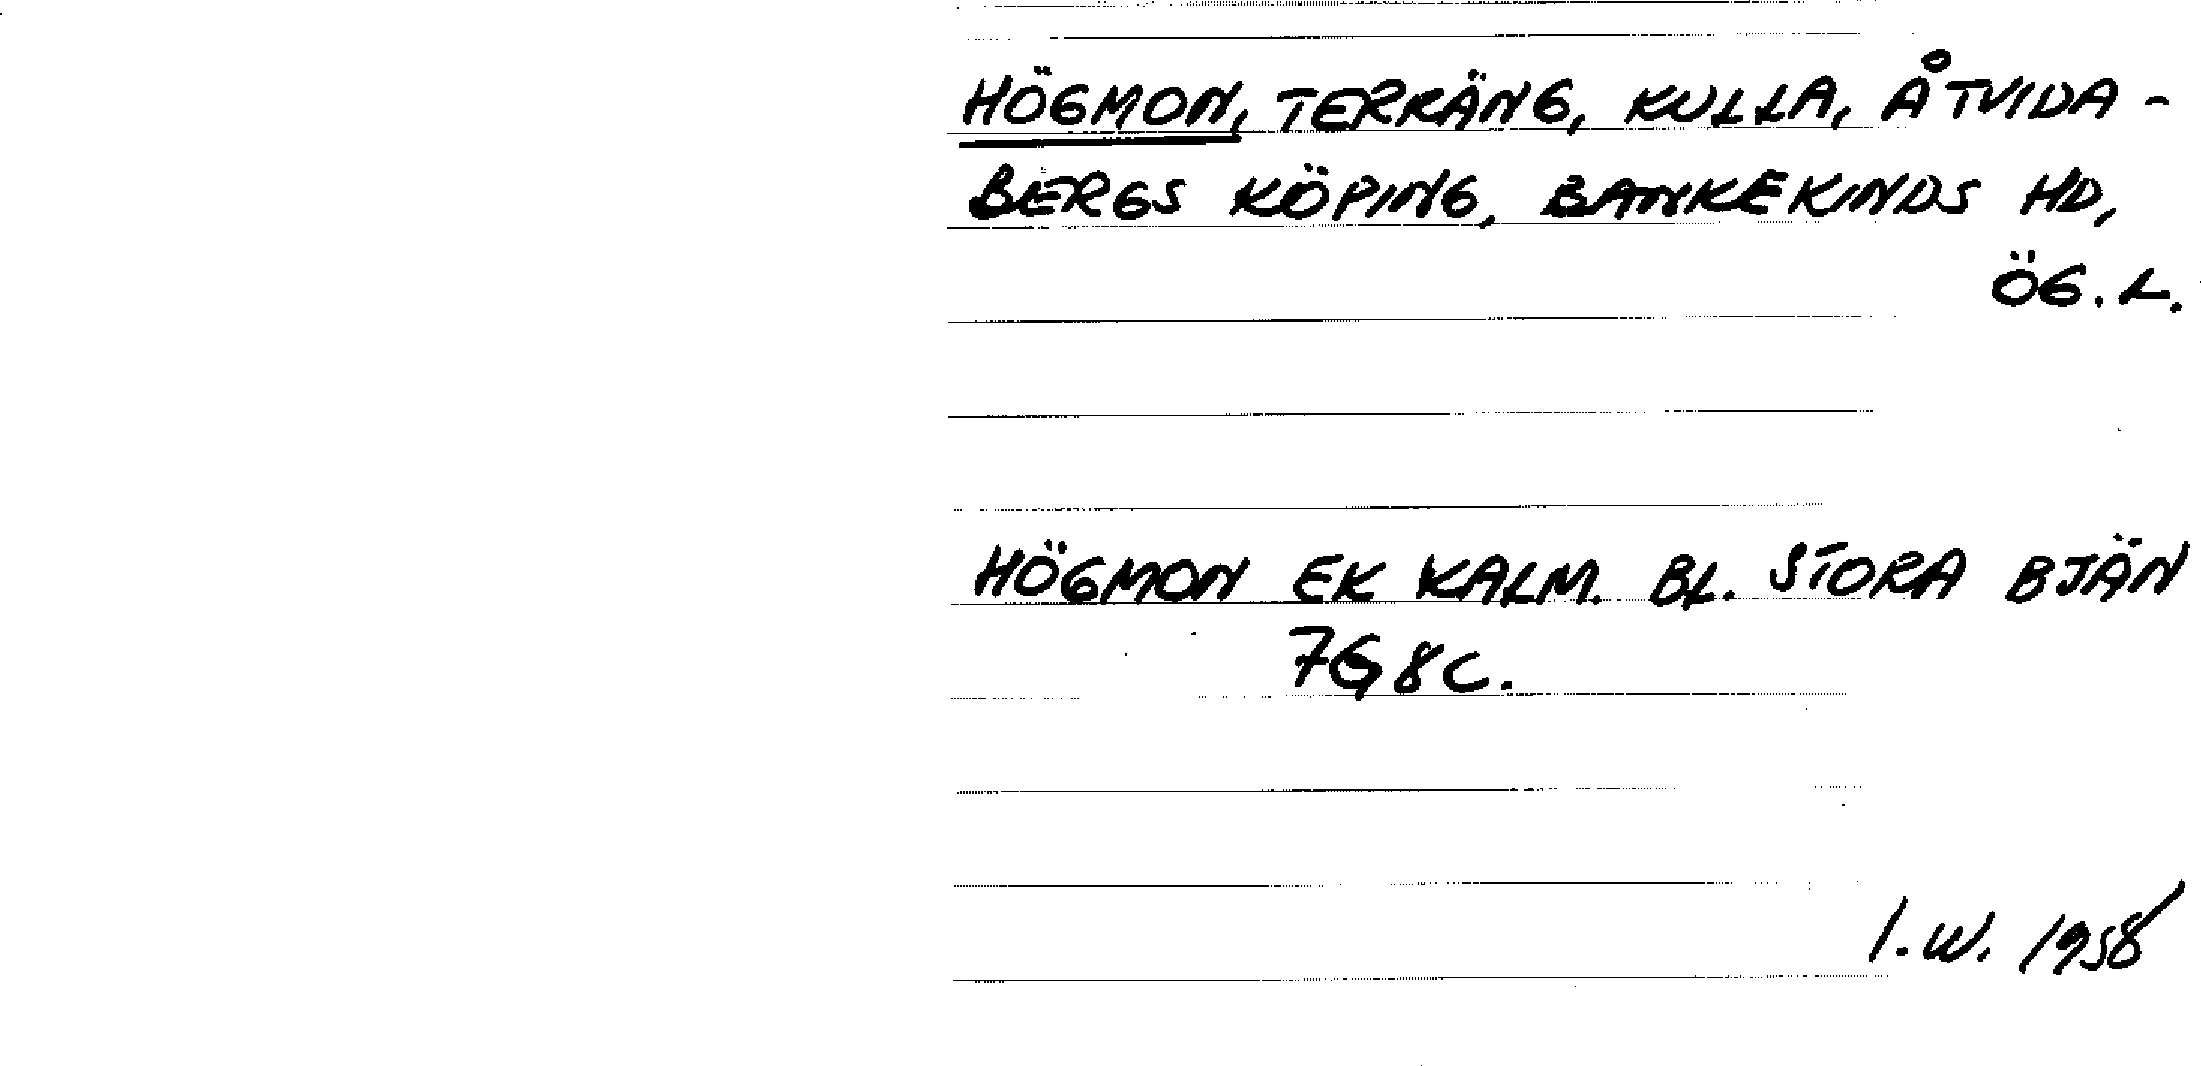 HÖGMON, TERRÄNG, KULLA, ÅTVIDA-
BERGS KÖPING, BANKEKINDS HD,
ÖG. L.
HÖGMON EK KALM. BL. STORA BJÄN
7G 8C.
I.W. 1958